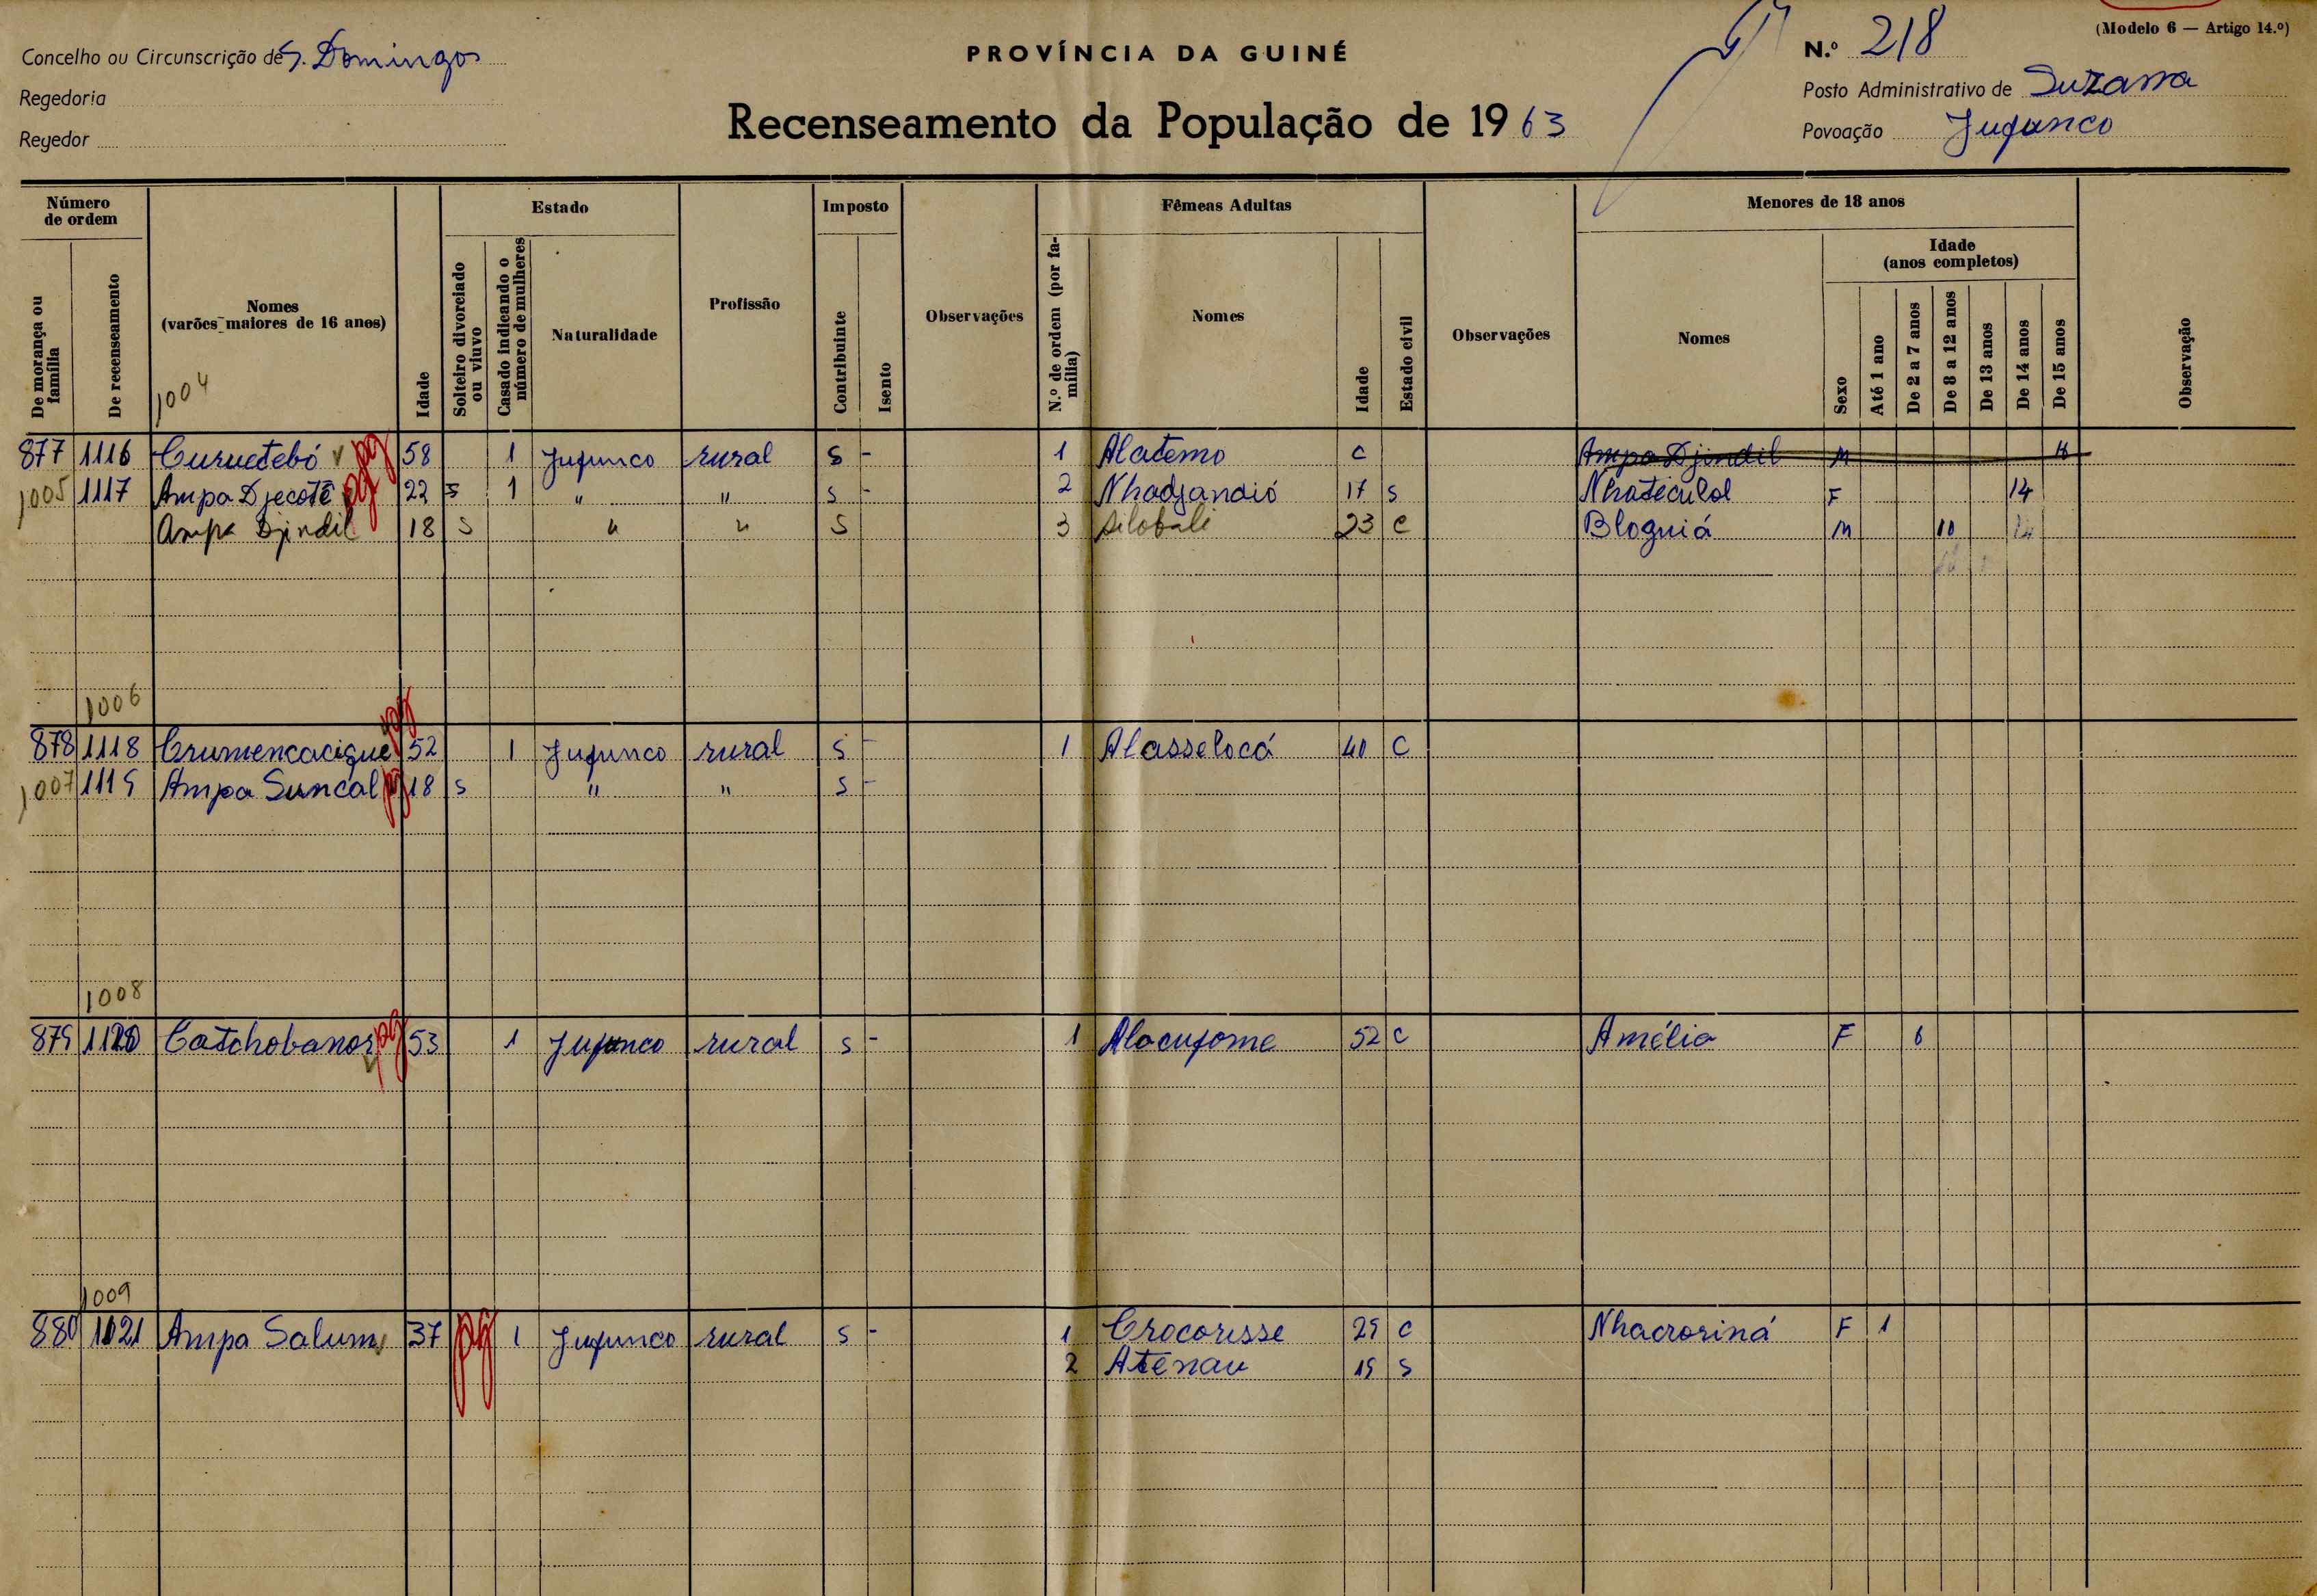 (Modelo 6 — Artigo 14.º)
Concelho ou Circunscrição de S. Domingos
PROVÍNCIA DA GUINÉ
N.º 218
Regedoria
Posto Administrativo de Suzana
Regedor
Recenseamento da População de 1963
Povoação Jufunco
Número de ordem
Estado
Imposto
Fêmeas Adultas
Menores de 18 anos
Idade (anos completos)
De morança ou família
De recenseamento
Nomes (varões maiores de 16 anos)
Idade
Solteiro divorciado ou viuvo
Casado indicando o número de mulheres
Naturalidade
Profissão
Contribuinte
Isento
Observações
N.º de ordem (por família)
Nomes
Idade
Estado civil
Observações
Nomes
Sexo
Até 1 ano
De 2 a 7 anos
De 8 a 12 anos
De 13 anos
De 14 anos
De 15 anos
Observação
1004
877 1116 Curuetebó pg 58 1 Jufunco rural s - 1 Alatemo c Ampa Djindil M
1005 1117 Ampa Djecotê pg 22 s 1 " " s - 2 Nhadjandió 17 s Nhateculol F 14
Ampa Djindil 18 s " " s 3 Silobali 23 c Bloguiá M 10 14
1006
878 1118 Crumencacique pg 52 1 Jufunco rural s - 1 Alasselocá 40 c
1007 1119 Ampa Suncal pg 18 s " " s -
1008
879 1120 Catchobanor pg 53 1 Jufunco rural s - 1 Alacufome 52 c Amélia F 6
1009
880 1021 Ampa Salum 37 pg 1 Jufunco rural s - 1 Crocorisse 29 c Nhacroriná F 1
2 Atenau 19 s